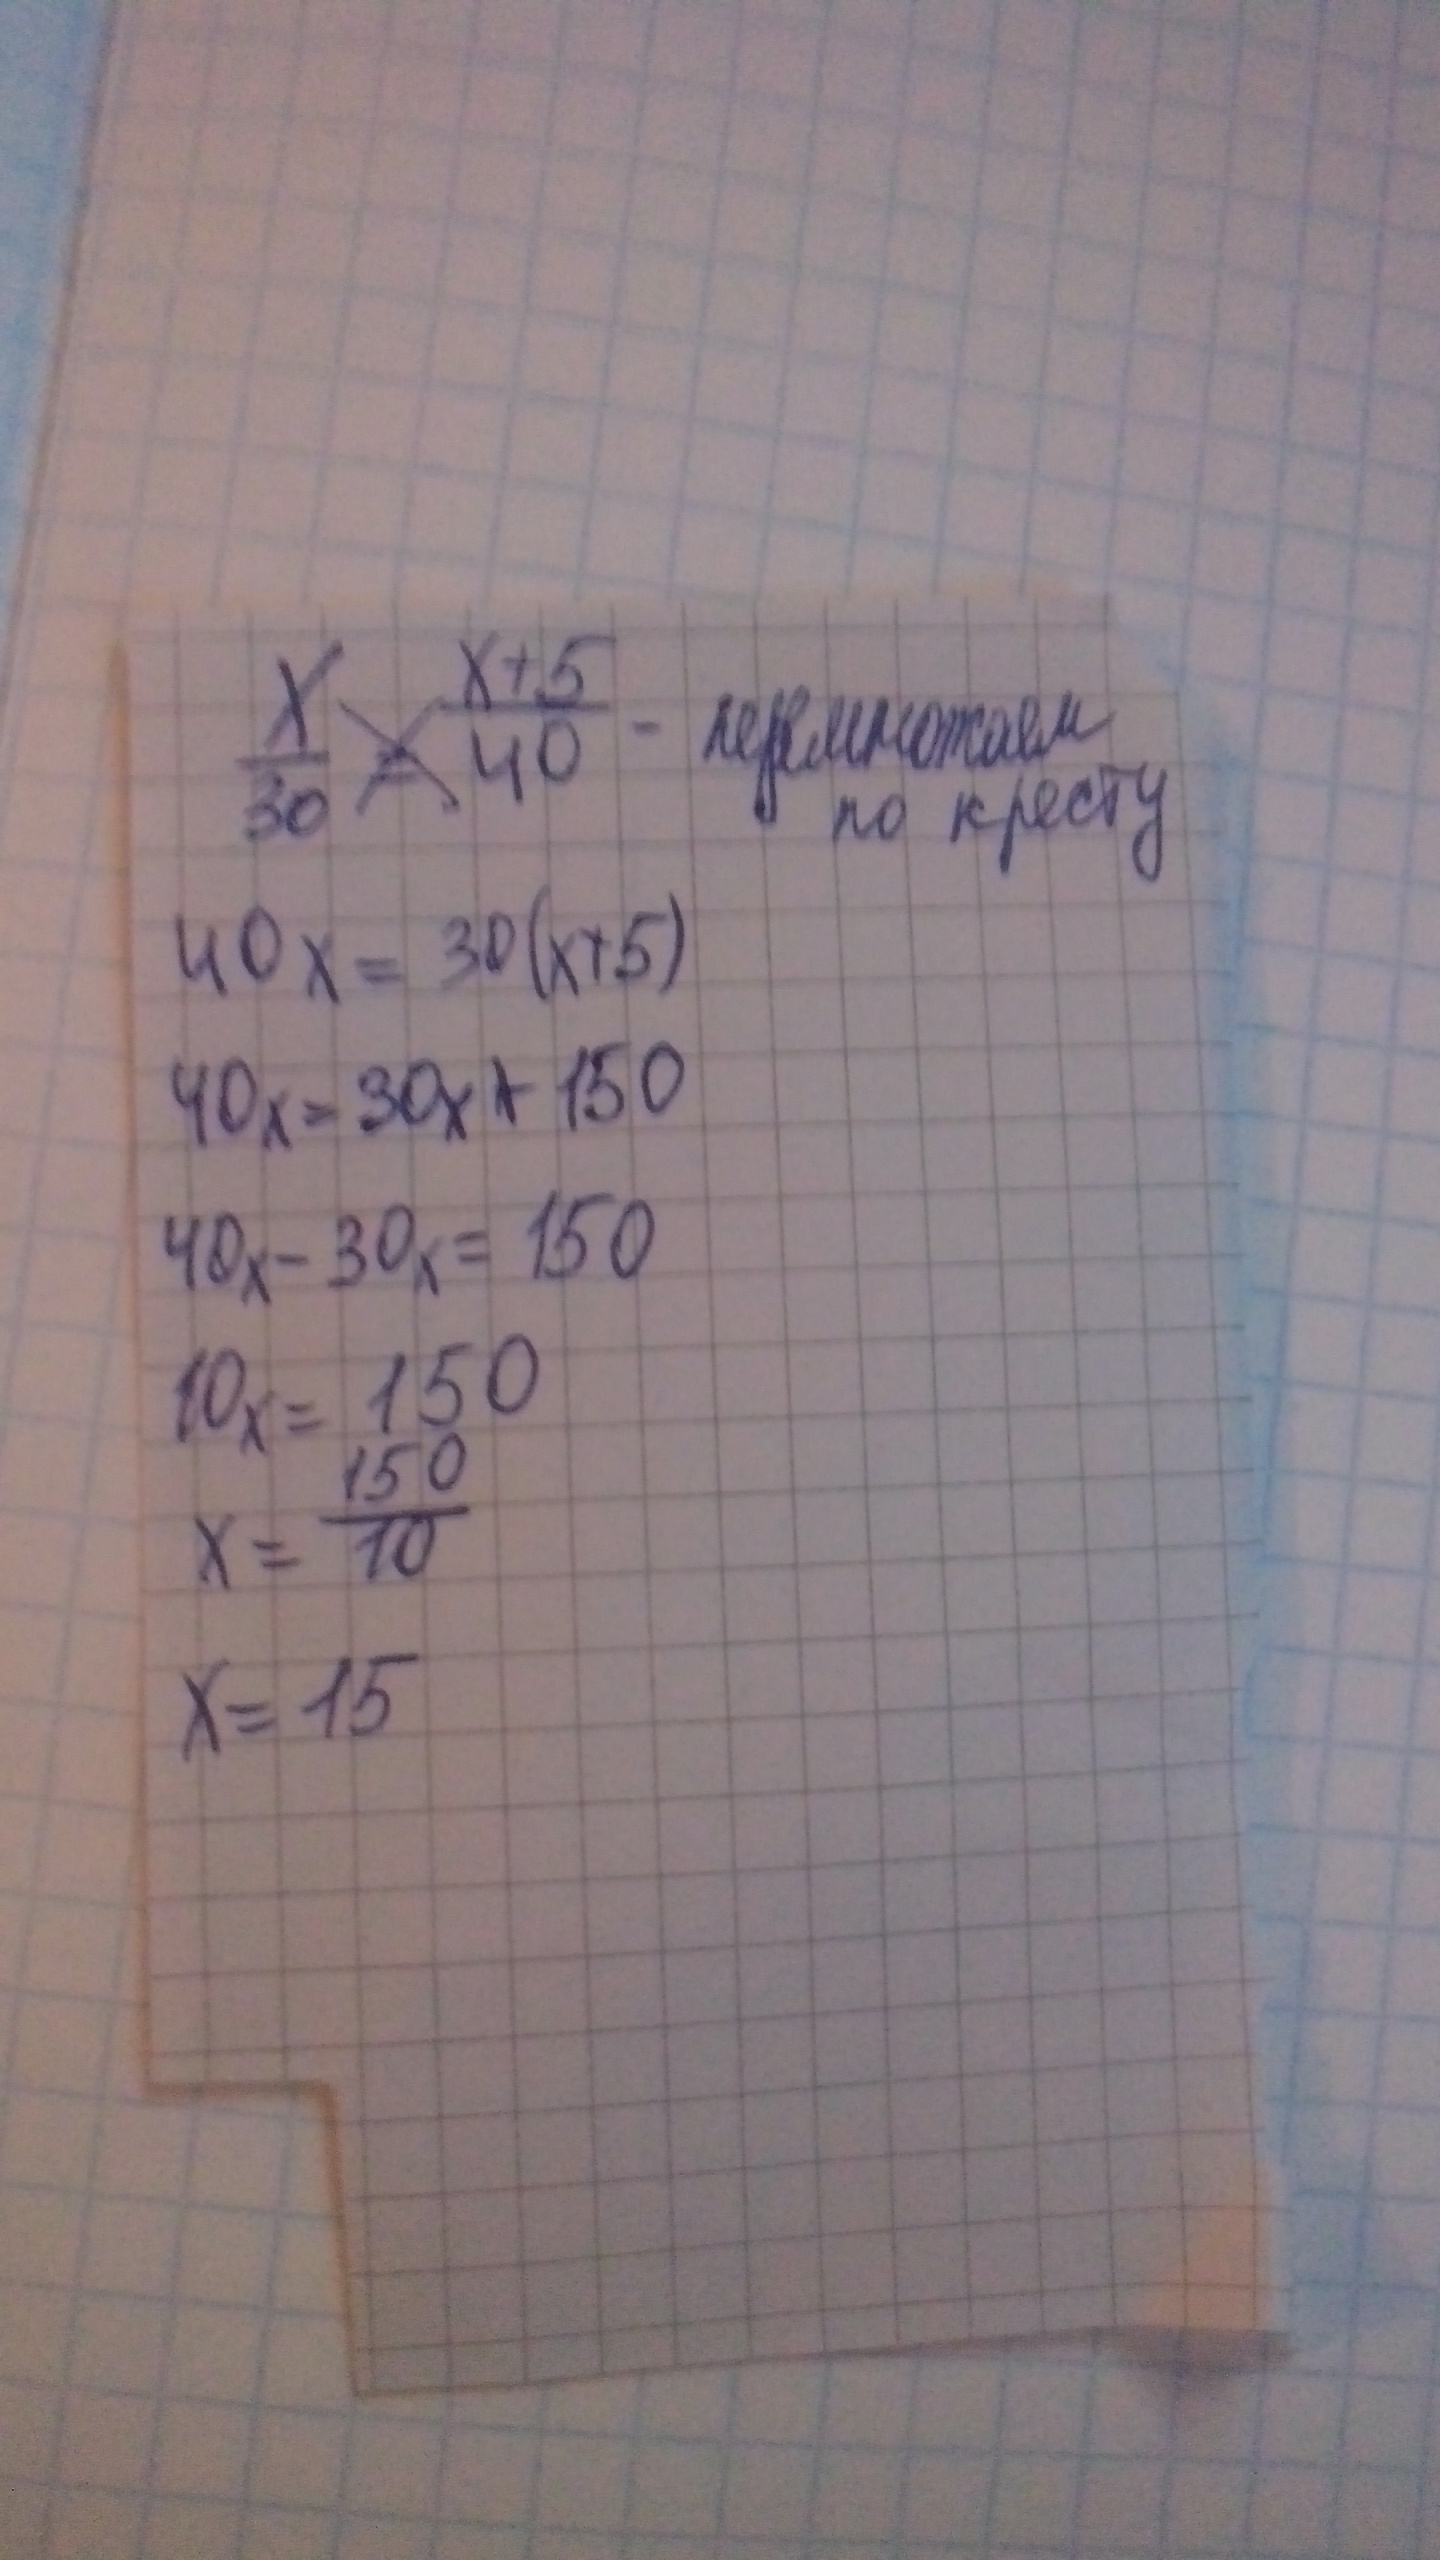 x/30 = x+5/40 - перемножаем
по кресту
40x = 30(x+5)
40x = 30x + 150
40x - 30x = 150
10x = 150
x = 150/10
x = 15